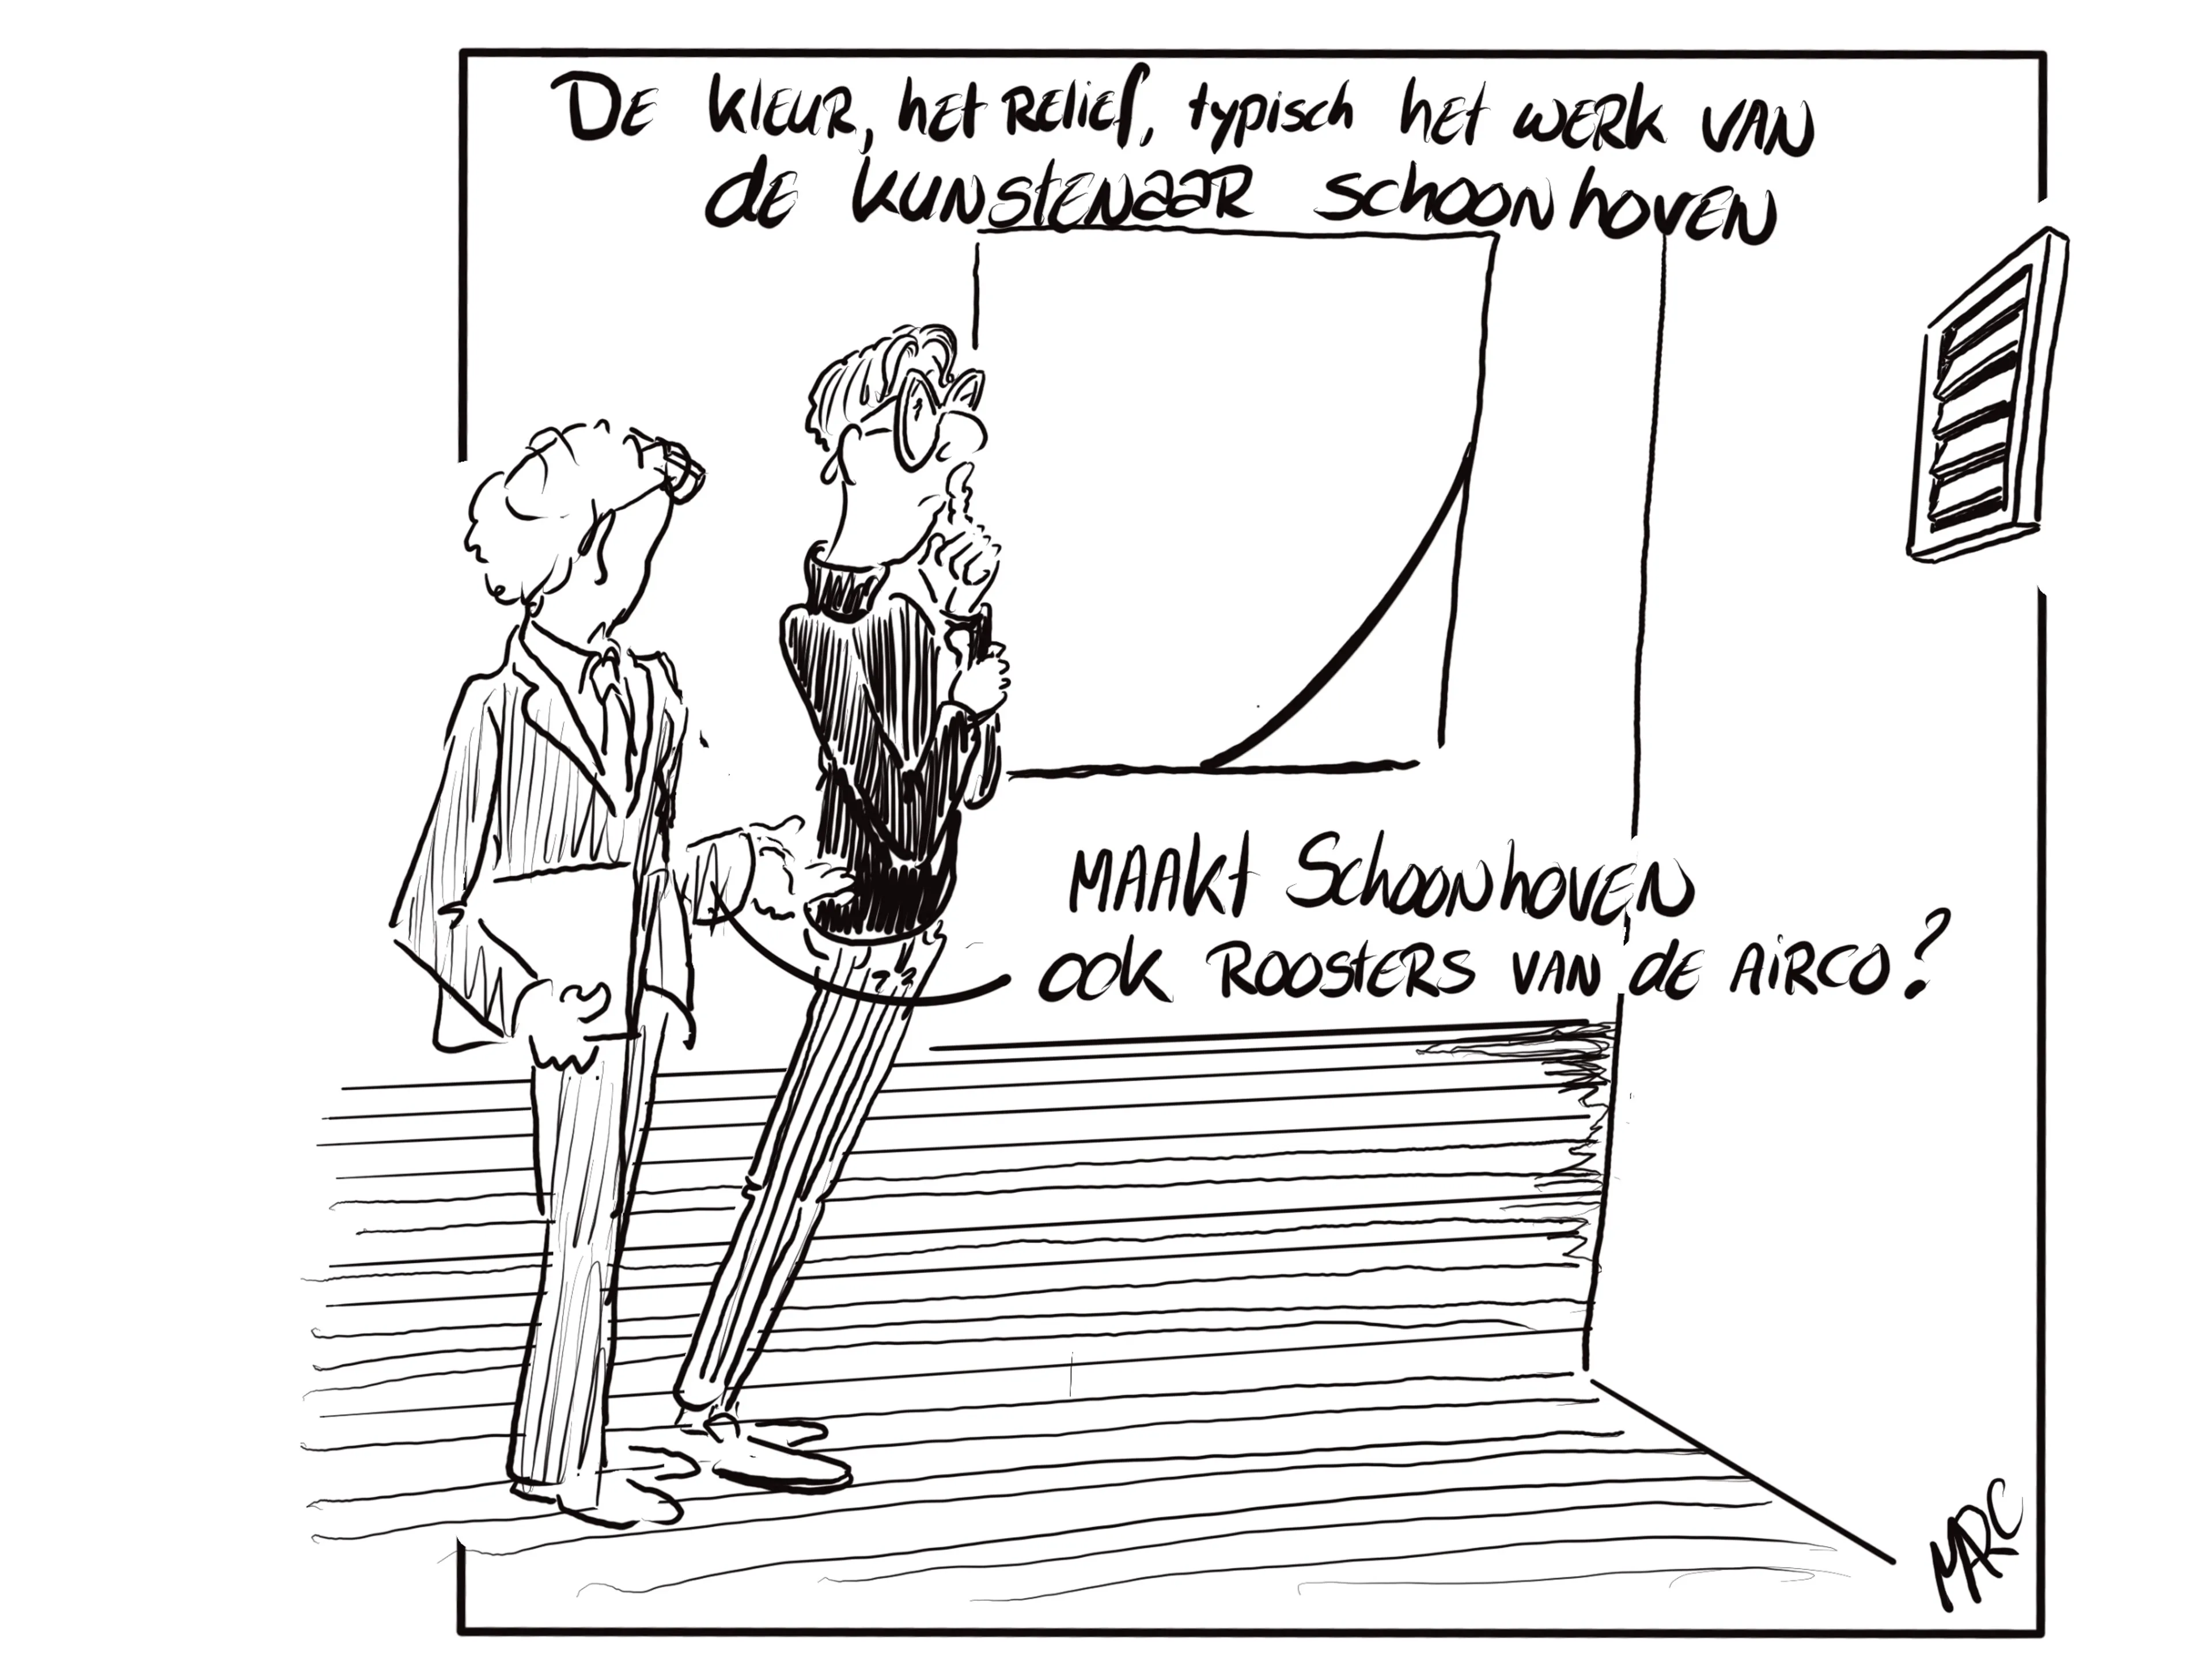 De kleur, het relief, typisch het werk van
de kunstenaar Schoonhoven
Maakt Schoonhoven
ook roosters van de airco?
MARC